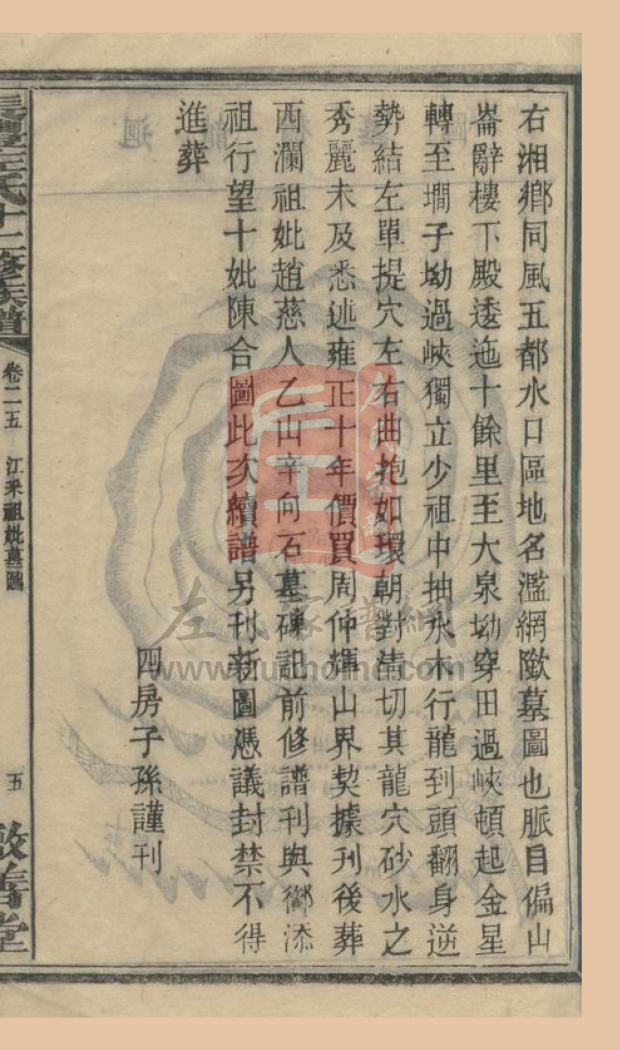 右湘鄉同風五都水口區地名濫網墓圖也脈自偏山
崙辭樓下殿逶迤十餘里至大泉坳穿田過峽頓起金星
轉至壩子坳過峽獨立少祖中抽水木行龍到頭翻身逆
勢結左單提穴左右曲抱如環朝對清切其龍穴砂水之
秀麗未及悉述雍正十年價買周仲輝山界契據刋後葬
西瀾祖妣趙慈人乙山辛向石墓碑記前修譜刋與鄉添
祖行望十妣陳合圖此次續譜另刊新圖憑議封禁不得
進葬
四房子孫謹刊
左氏十二修族譜
卷二五
江釆祖妣墓圖
五
敦善堂
左氏家譜網